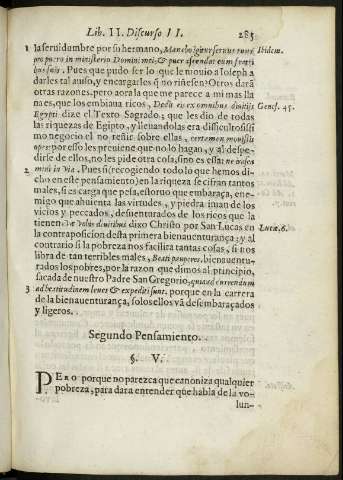 Lib. II. Discurso II.
285
1 la seruidumbre por su hermano, Manebo igitur seruus tuus
Ibidem.
pro puero in ministerio Domini mei, & puer ascendat cum fratri
bus suis. Pues que pudo ser lo que le mouio a Ioseph a
darles tal auso, y encargarles q̃ no riñesen? Otros darã
otras razones. pero aora la que me parece a mi mas lla
na es, que los embiaua ricos, Dedit eis ex omnibus diuitijs
Genes. 45.
Egypti dize el Texto Sagrado; que les dio de todas
las riquezas de Egipto, y lleuandolas era dificultosissi
mo negocio el no reñir sobre ellas, certamen mouistis
opes: por esso les preuiene que no lo hagan, y al despe-
dirse de ellos, no les pide otra cosa, sino es essa:
2 Pues si (recogiendo todo lo que hemos di-
cho en este pensamiento) en la riqueza se cifran tantos
males, si es carga que pesa, estoruo que embaraça, ene-
migo que ahuienta las virtudes, y piedra iman de los
vicios y peccados, desuenturados de los ricos que la
tienen: Væ vobis diuitibus dixo Christo por San Lucas en
Lucæ, 6.
la contraposicion desta primera bienauenturança; y al
contrario si la pobreza nos facilita tantas cosas, si nos
libra de tan terribles males, Beati pauperes, bienauentu-
rados los pobres, por la razon que dimos al principio,
sacada de nuestro Padre San Gregorio, quia ad currendum
3 ad beatitudinem leues & expediti sunt. porque en la carrera
de la bienauenturança, solos ellos vã desembaraçados
y ligeros.
Segundo Pensamiento.
§. V.
PERO porque no parezca que canoniza qualquier
pobreza, para dar a entender que habla de la vo-
lun-